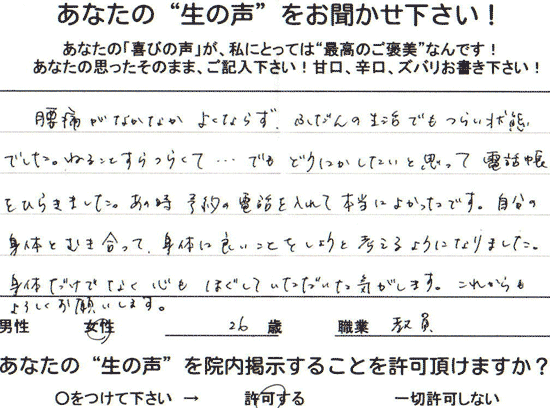 あなたの“生の声”をお聞かせ下さい！
あなたの「喜びの声」が、私にとっては“最高のご褒美”なんです！
あなたの思ったそのまま、ご記入下さい！甘口、辛口、ズバリお書き下さい！
腰痛がなかなかよくならず、ふだんの生活でもつらい状態
でした。ねることすらつらくて…でもどうにかしたいと思って電話帳
をひらきました。あの時予約の電話を入れて本当によかったです。自分の
身体とむき合って、身体に良いことをしようと考えるようになりました。
身体だけでなく心もほぐしていただいた気がします。これからも
よろしくお願いします。
男性 女性 26 歳 職業 教員
あなたの“生の声”を院内掲示することを許可頂けますか？
○をつけて下さい → 許可する 一切許可しない